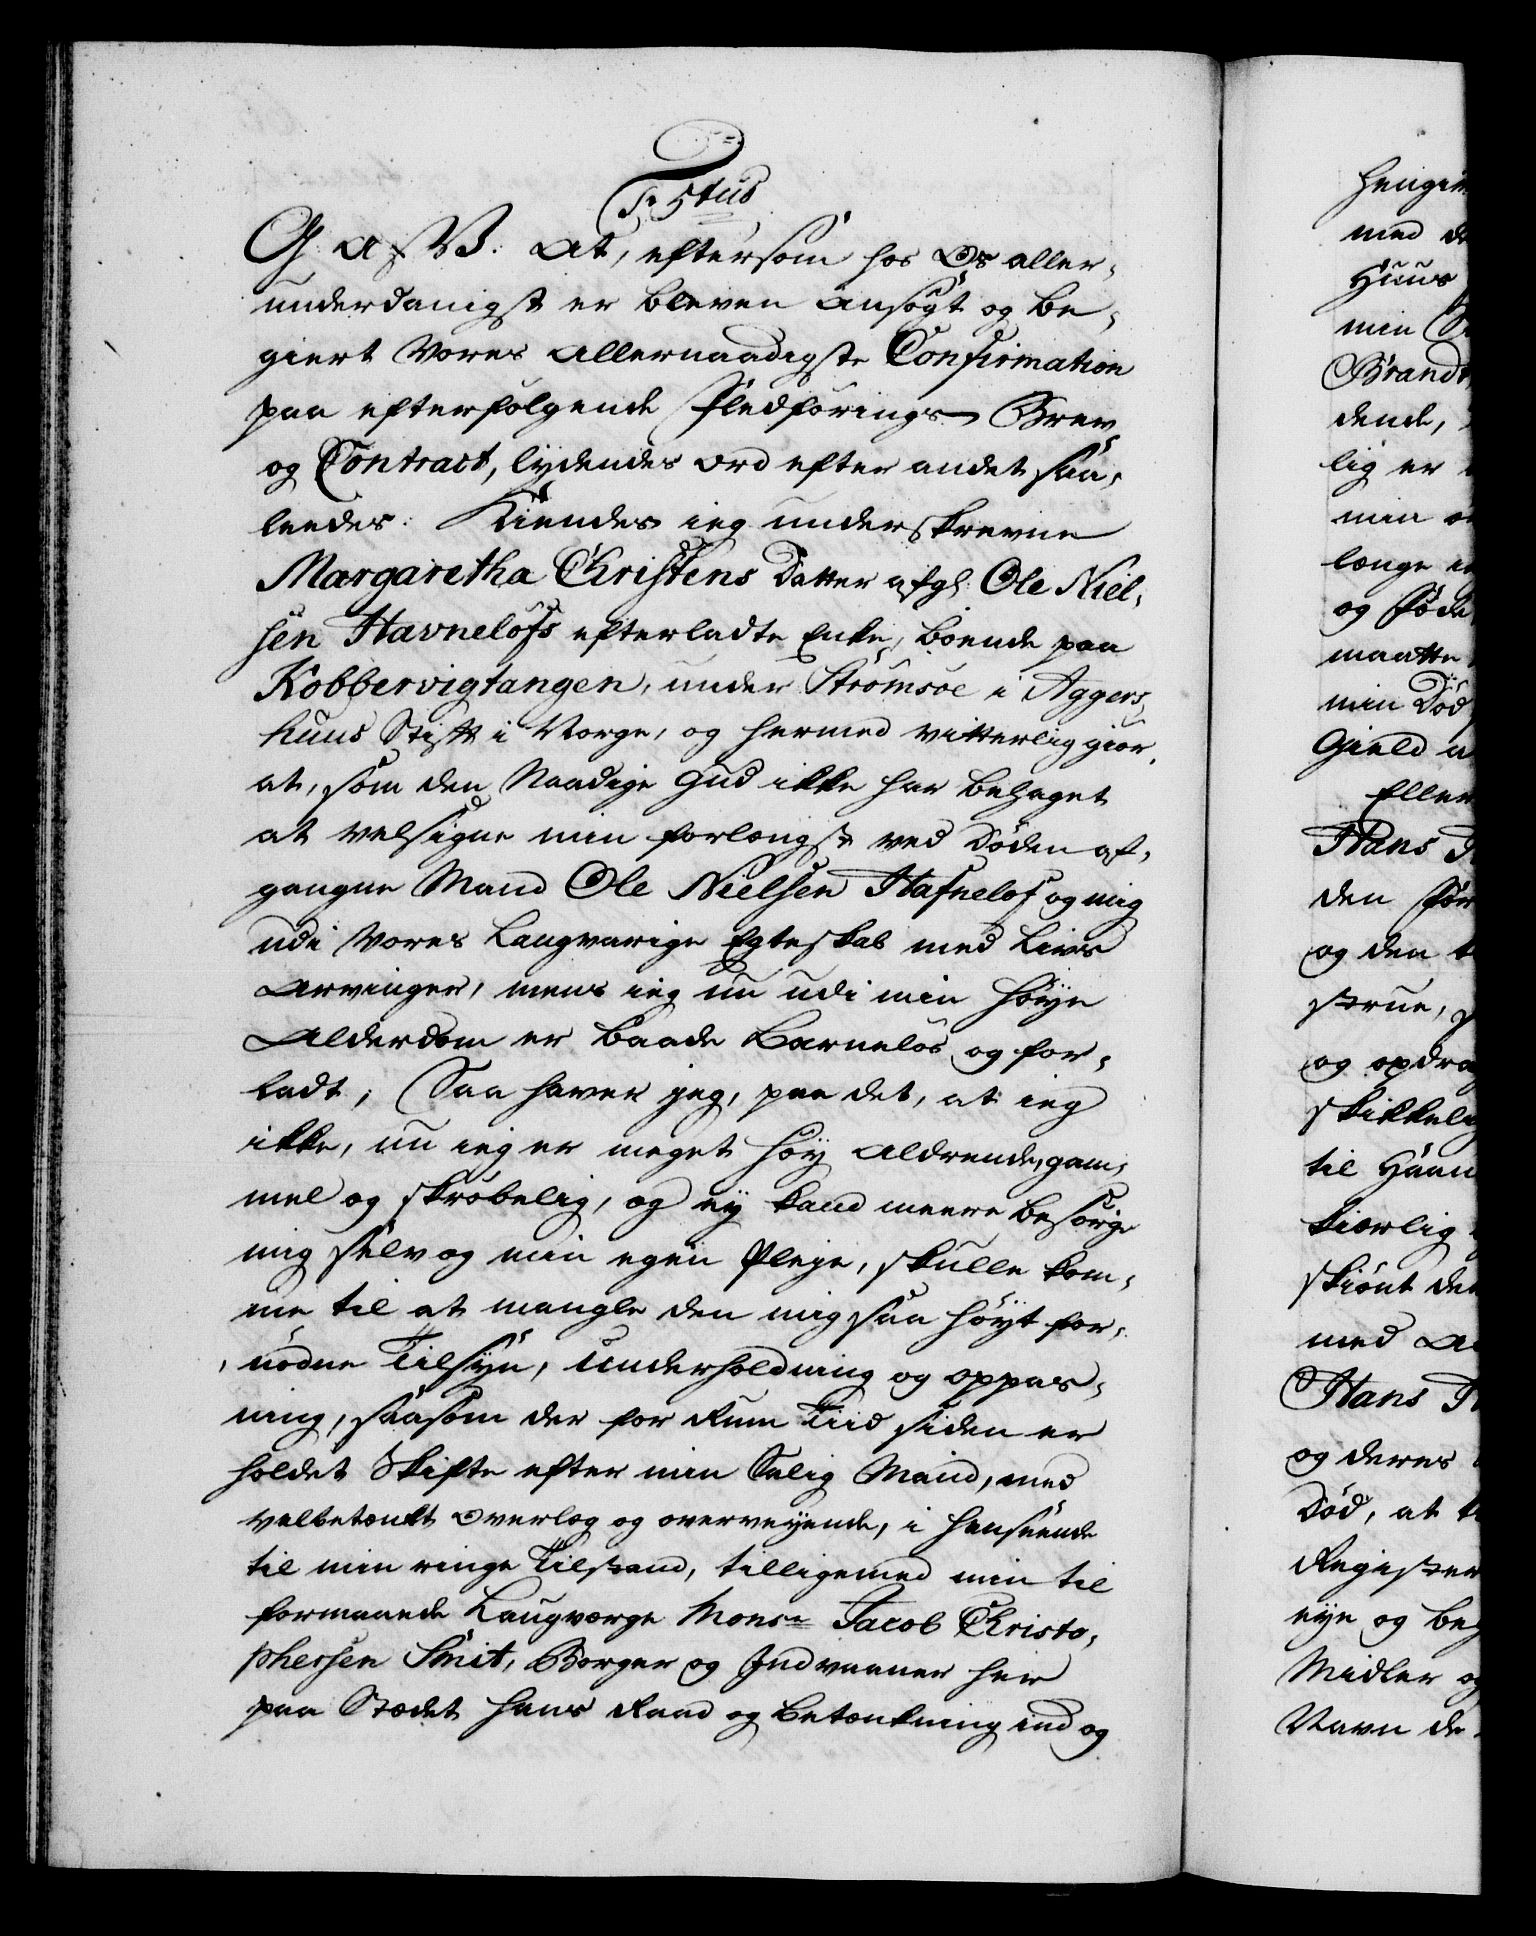 Fr 5tus
G. A. V. At, eftersom hos Os aller,
underdanigst er bleven ansøgt og be,
giert Vores Allernaadigste Confirmation
paa efterfølgende Fledførings Brev
og Contract, lydendes ord efter andet saa,
leedes: Kiendes ieg underskrevne
Margaretha Christens Datter afgl: Ole Niel,
sen Havneløfs efterladte Enke, boende paa
Kobbervigtangen, under Strømsøe i Aggers,
huus Stift i Norge, og hermed vitterlig giør,
at, som den Naadige Gud ikke har behaget
at velsigne min forlængst ved Døden af,
gangne Mand Ole Nielsen Hafneløf og mig
udi Vores langvarige Egteskab med Livs
Arvinger, mens ieg nu udi min høye
Alderdom er baade Barneløs og for,
ladt; Saa haver jeg, paa det, at ieg
ikke, nu ieg er meget høy Aldrende, gam,
mel og skrøbelig, og ey kand meere besørge
mig selv og min egen Pleje, skulle kom,
me til at mangle den mig saa høyt for,
nødne Tilsyn, Underholdning og oppas,
ning, saasom der for Rum Tiid siden er
holdet Skifte efter min Salig Mand, med
velbetænkt Overlæg og overveyende, i henseende
til min ringe Tilstand, tilligemed min til
formaaede Laugværge Monsr Jacob Christo,
phersen Smit, Borger og Indvaaner her
paa Stædet hans Raad og Betænkning ind og
hengi
med de
Huus
min S
Brandt
dende,
lig er
min
længe i
og Føde
maatte
min Død
Gield
Eller
Hans
den før
og den
strue,
og opdra
skikkelig
til Haan
kiærlig
skiønt den
med
Hans
og deres
Død, at
Register
eye og
Midler og
Navn de